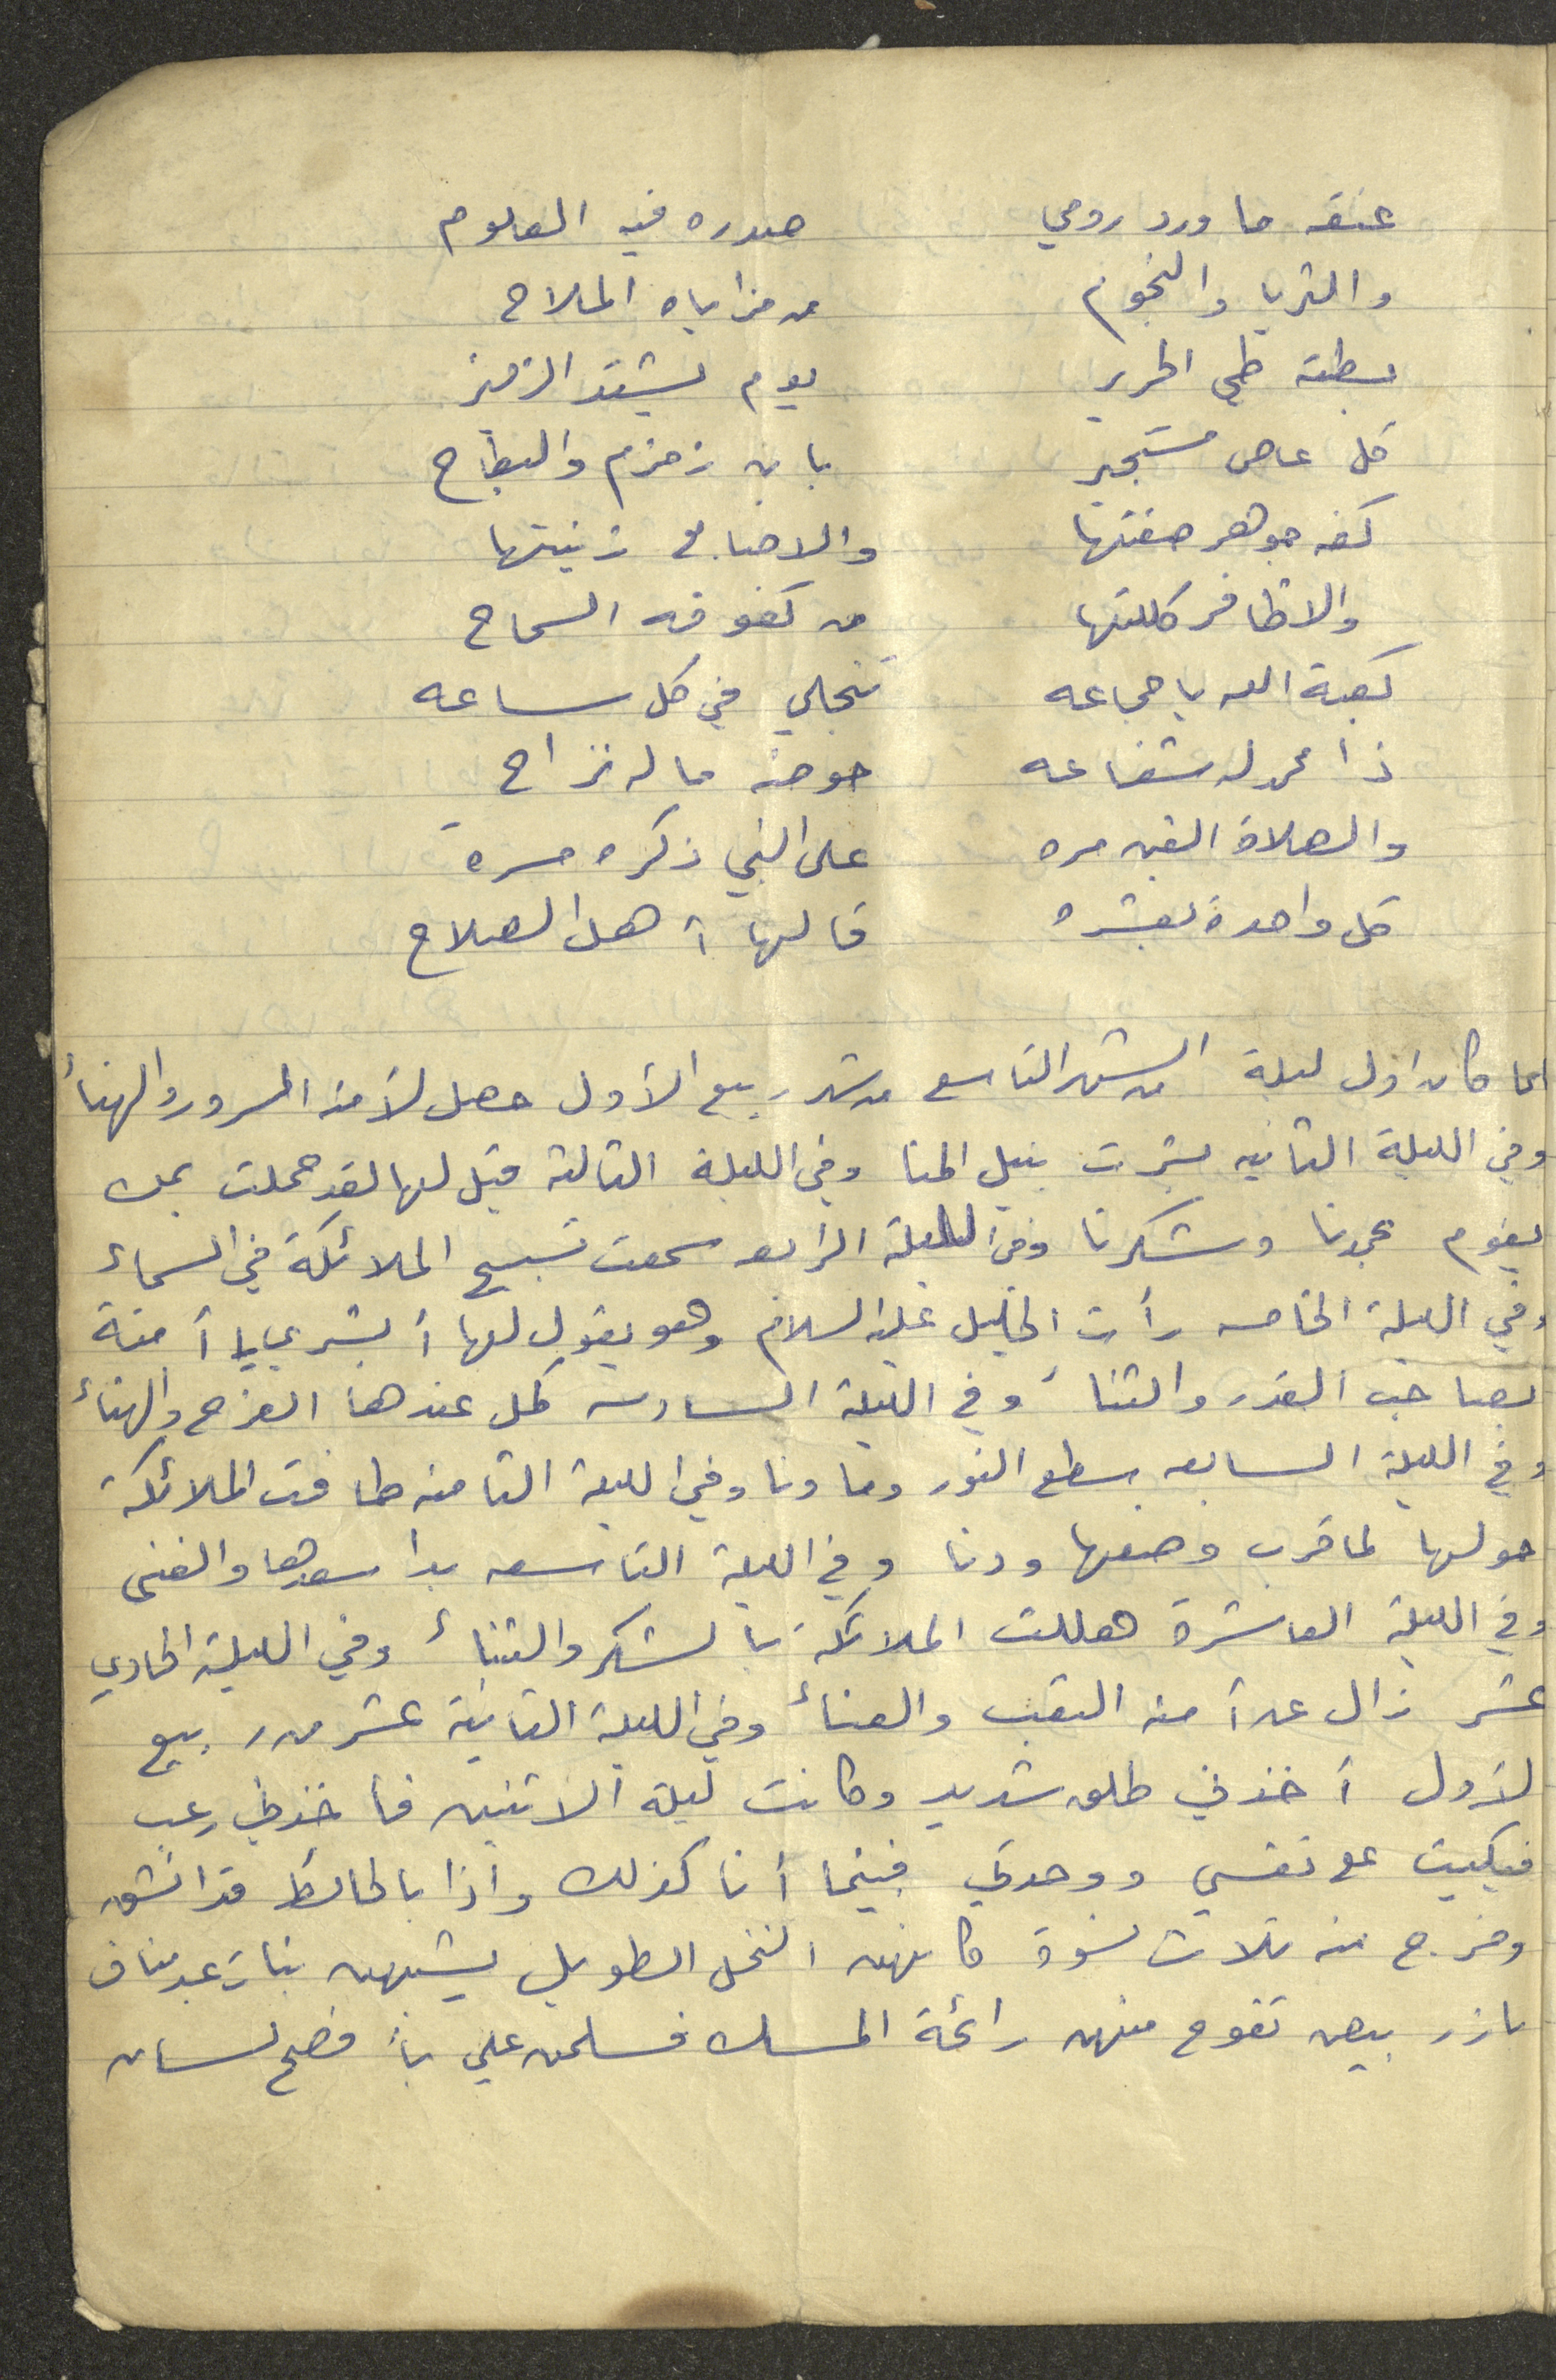 عنقه ما ورد رومي صدره فيه العلوم
والثريا والنجوم من مزاياه الملاح
بطنه طي الحرير يوم يشتد الزفير
كل عاص مستجير بابن زمزم والبطاح
كفه جوهر صفتها والاصابع زينتها
والاظافر كللتها من كفوفه السماح
كعبة الله يا جماعه تنجلي في كل ساعه
ذا محمد له شفاعه حوضه ماله نزاح
والصلاة ألفين مره على النبي ذكره مسرة
كل واحدة بعشره قالها أهل الصلاح
لما كان اول ليلة من الشهر التاسع من شهر ربيع الأول حصل لآمنه السرور والهنأ
وفي الليلة الثانيه بشرت بنيل المنا وفي الليلة الثالثة قيل لها لقد حملت بمن
يقوم بحمدنا وشكرنا وفي الليلة الرابعه سمعت تسبيح الملائكة في السماء
وفي الليلة الخامسه رأت الخليل عليه السلام وهو يقول لها أبشري يا أمنة
بصاحب القدر والثناء وفي الليلة السادسه كمل عندها الفرح والهناء
وفي الليلة السابعه سطع النور وما ونا وفي الليلة الثامنه طافت الملائكة
حولها لما قرب وضعها ودنا وفي الليلة التاسعه بدا سعدها والغنى
وفي الليلة العاشرة هللت الملائكة بالشكر والثناء وفي الليلة الحادي
عشر زال عن أمنه التعب والعناء وفي الليلة الثانية عشر من ربيع
لأول أخذني طلق شديد وكانت ليلة الاثنين فأخذني رعب
فبكيت على نفسي ووحدتي فبينما أنا كذلك واذا بالحائط قد انشق
وخرج منه ثلاث نسوة كانهن النخل الطويل يشبهن بنات عبد مناف
بازر بيض تفوح منهن رائحة المسك فسلمن علي بأفصح لسان